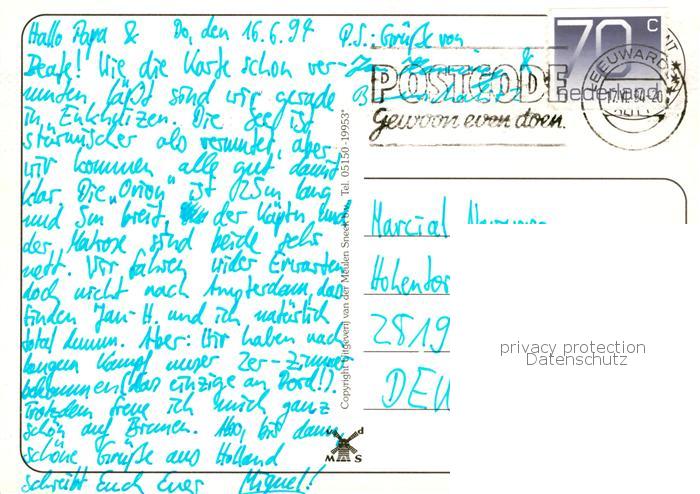 Hallo Papa & Do, den 16.6.94
Beate! Wie die Karte schon ver-
muten läßt sind wir gerade
in Enkhuizen. Die See ist
stürmischer als vermutet, aber
wir kommen alle gut damit
klar. Die „Orion" ist 25m lang
und 5m breit, der Käptn und
der Matrose sind beide sehr
nett. Wir fahren wider Erwarten
doch nicht nach Amsterdam, das
finden Jan-H. und ich natürlich
total dumm. Aber: Wir haben nach
langem Kampf unser 2er-Zimmer
bekommen (das einzige an Bord!).
Trotzdem freue ich mich ganz
schön auf Bremen. Also, bis dann
schöne Grüße aus Holland
schreibt Euch Euer Miguel!
P.S.: Grüße von
&
POSTCODE
Gewoon even doen.
70 c
nederland
LEEUWARDEN
17.VI.94-20
Copyright Uitgeverij van der Meulen Sneek b.v. Tel. 05150-19953*
Marcial
Hohentor
2819
DEU
v d
M S
privacy protection
Datenschutz